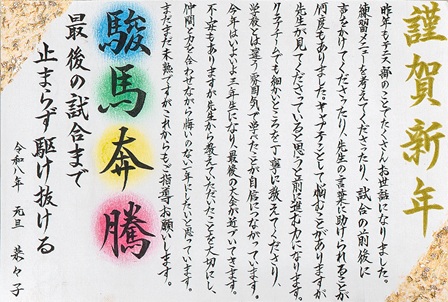 謹賀新年
昨年もテニス部のことでたくさんお世話になりました。
練習メニューを考えてくださったり、試合の前後に
声をかけてくださったり、先生の言葉に助けられることが
何度もありました。キャプテンとして悩むことがありますが
先生が見てくださっていると思うと前に進む力になります。
クラスチームでも細かいところを丁寧に教えてくださり、
学校とは違う雰囲気で学べたことが自信につながっています。
今年はいよいよ三年生になり、最後の大会が近づいてきます。
不安もありますが先生から教えていただいたことを大切にし、
仲間と力を合わせながら悔いのない一年にしたいと思っています。
まだまだ未熟ですがこれからもご指導お願いします。
駿馬奔騰
最後の試合まで
止まらず駆け抜ける
令和八年 元旦 菜々子